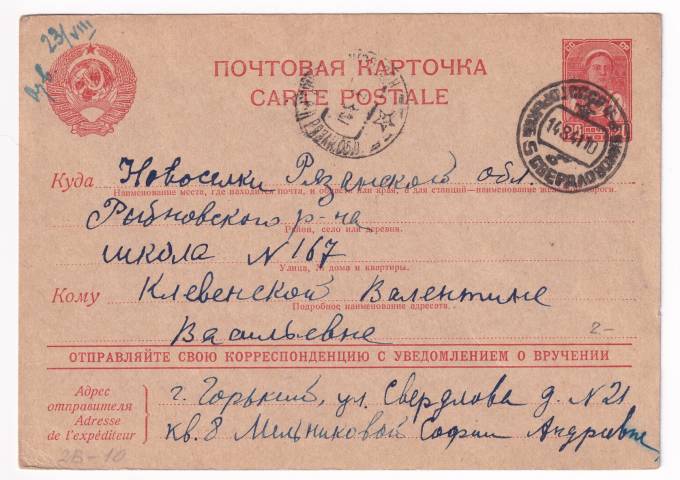 23/VIII
ПОЧТОВАЯ КАРТОЧКА
CARTE POSTALE
14 8 41 10
Куда Новоселки Рязанской обл.
Наименование места, где находится почта, и области или края, а для станций—наименование железной дороги.
Рыбновского р-на
Район, село или деревня.
школа N 167
Улица, № дома и квартиры.
Кому Клевенской Валентине
Подробное наименование адресата.
Васильевне
2-
ОТПРАВЛЯЙТЕ СВОЮ КОРРЕСПОНДЕНЦИЮ С УВЕДОМЛЕНИЕМ О ВРУЧЕНИИ
Адрес отправителя
Adresse de l'expéditeur
г. Горький, ул. Свердлова д. N 21
кв. 8 Мельниковой Софии Андравне
2В-10